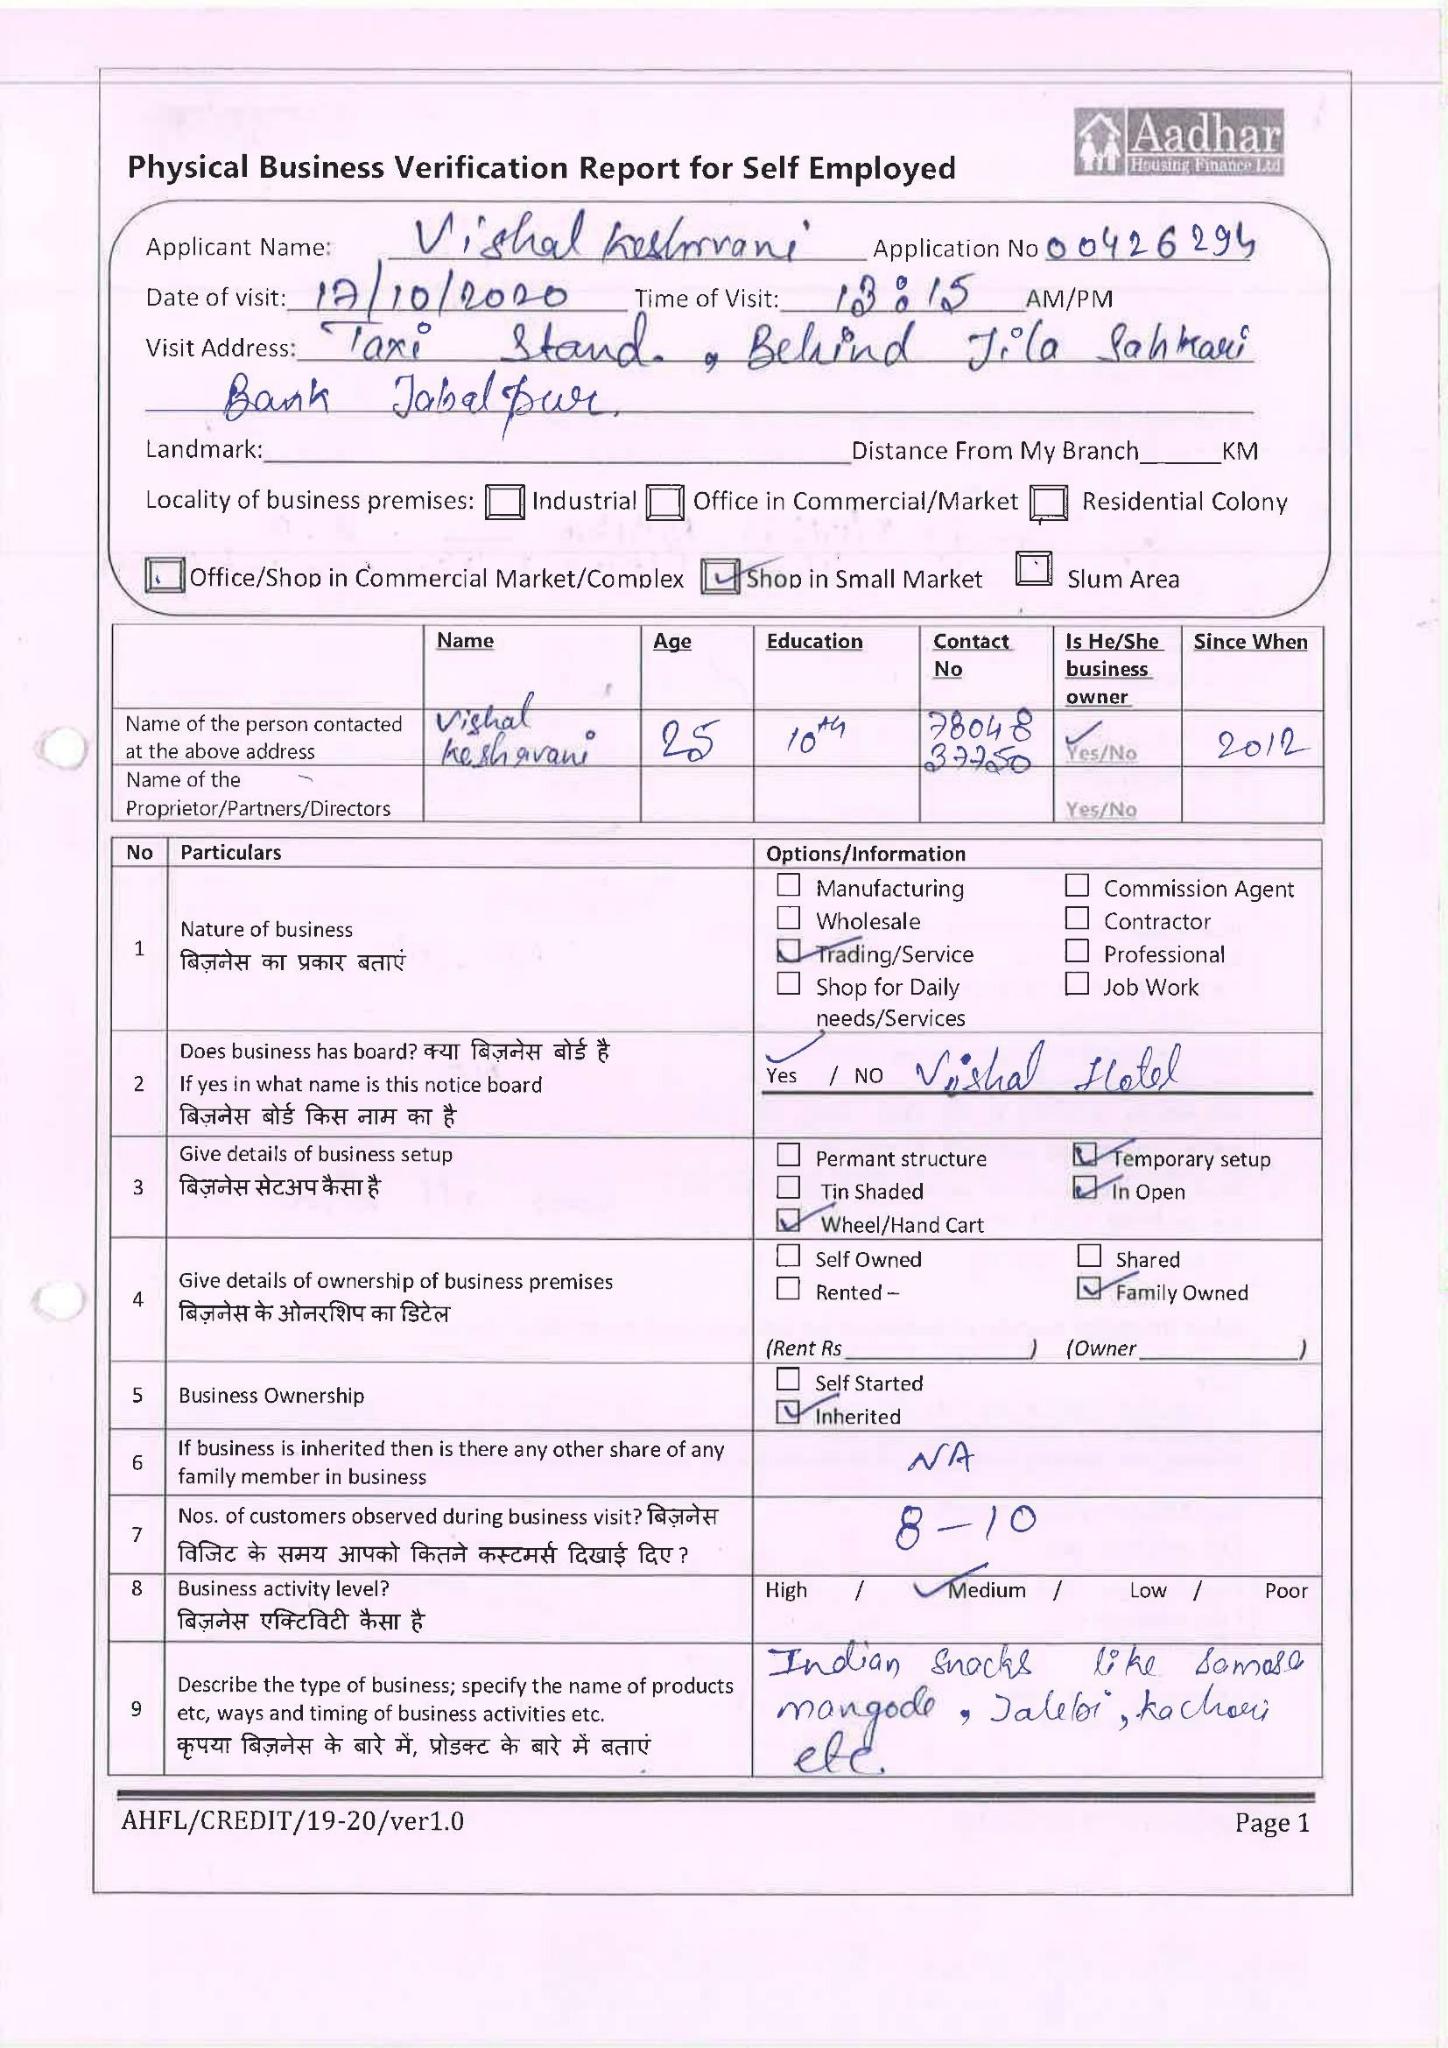 Aadhar
Housing Finance Ltd
Physical Business Verification Report for Self Employed
Applicant Name: Vishal Keshrvani Application No 00426294
Date of visit: 17/10/2020 Time of Visit: 13:15 AM/PM
Visit Address: Taxi Stand, Behind Jila Sahkari
Bank Jabalpur.
Landmark: Distance From My Branch KM
Locality of business premises: Industrial Office in Commercial/Market Residential Colony
Office/Shop in Commercial Market/Complex Shop in Small Market Slum Area
Name Age Education Contact No Is He/She business owner Since When
Name of the person contacted at the above address Vishal Kesharvani 25 10th 78048 37750 Yes/No 2012
Name of the Proprietor/Partners/Directors Yes/No
No Particulars Options/Information
1 Nature of business
बिज़नेस का प्रकार बताएं
Manufacturing Commission Agent
Wholesale Contractor
Trading/Service Professional
Shop for Daily Job Work
needs/Services
Does business has board? क्या बिज़नेस बोर्ड है
2 If yes in what name is this notice board
बिज़नेस बोर्ड किस नाम का है
Yes / NO Vishal Hotel
3 Give details of business setup
बिज़नेस सेटअप कैसा है
Permant structure Temporary setup
Tin Shaded In Open
Wheel/Hand Cart
4 Give details of ownership of business premises
बिज़नेस के ओनरशिप का डिटेल
Self Owned Shared
Rented – Family Owned
(Rent Rs ) (Owner )
5 Business Ownership
Self Started
Inherited
6 If business is inherited then is there any other share of any
family member in business
NA
7 Nos. of customers observed during business visit? बिज़नेस
विजिट के समय आपको कितने कस्टमर्स दिखाई दिए ?
8-10
8 Business activity level?
बिज़नेस एक्टिविटी कैसा है
High / Medium / Low / Poor
9 Describe the type of business; specify the name of products
etc, ways and timing of business activities etc.
कृपया बिज़नेस के बारे में, प्रोडक्ट के बारे में बताएं
Indian snacks like Samosa
mangode, Jalebi, kachori
etc.
AHFL/CREDIT/19-20/ver1.0 Page 1